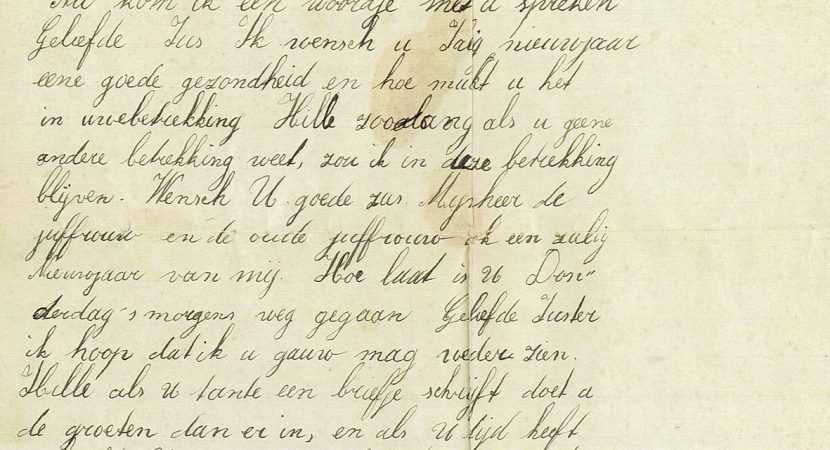 Nu kom ik een woordje met u spreken
Geliefde Zus Ik wensch u Zalig nieuwjaar
eene goede gezondheid en hoe maakt u het
in uwe betrekking Hille zoolang als u geene
andere betrekking weet, zou ik in deze betrekking
blijven. Wensch U goede zus Mynheer de
juffrouw en de oude juffrouw ok een zalig
Nieuwjaar van mij. Hoe laat is U Don"
derdag 's morgens weg gegaan Geliefde Zuster
ik hoop dat ik u gauw mag weder zien.
Hille als U tante een briefje schrijft doet u
de groeten dan er in, en als U tijd heeft